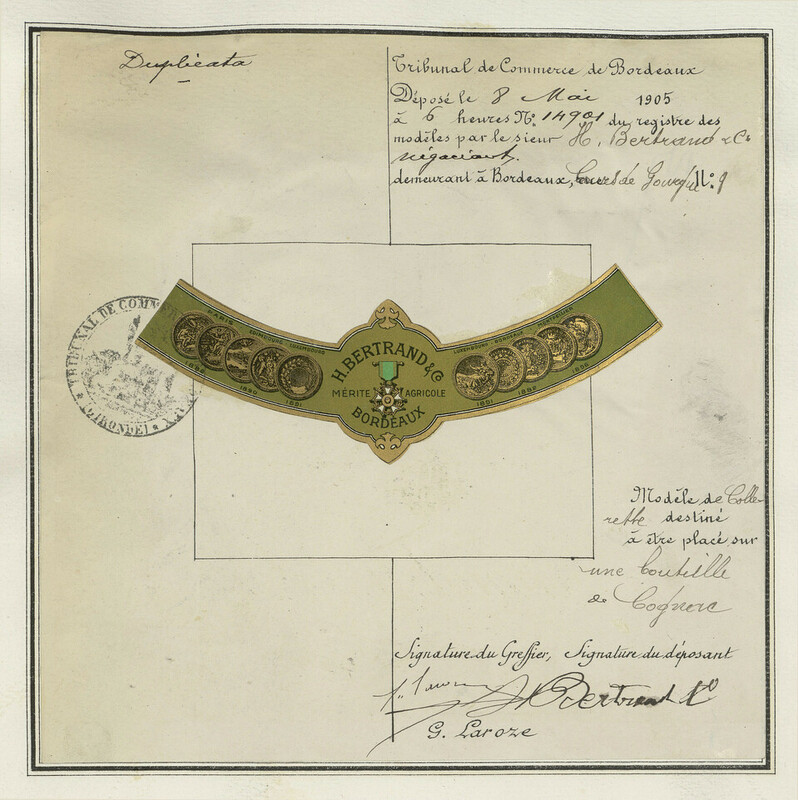 Duplicata
Tribunal de Commerce de Bordeaux
Déposé le 8 Mai 1905
à 6 heures No. 14901 du registre des
modèles par le sieur H. Bertrand & Co
négociant.
demeurant à Bordeaux, Cours de No. 9
TRIBUNAL DE COMM
(GIRONDE)
PARIS LUXEMBOURG
H. BERTRAND & Co
MÉRITE AGRICOLE
BORDEAUX
LUXEMBOURG BORDEAUX
1891
1891
Modèle de Colle-
rette destiné
à être placé sur
une bouteille
de Cognac
Signature du Greffier, Signature du déposant
H Bertrand & Co
G. Laroze